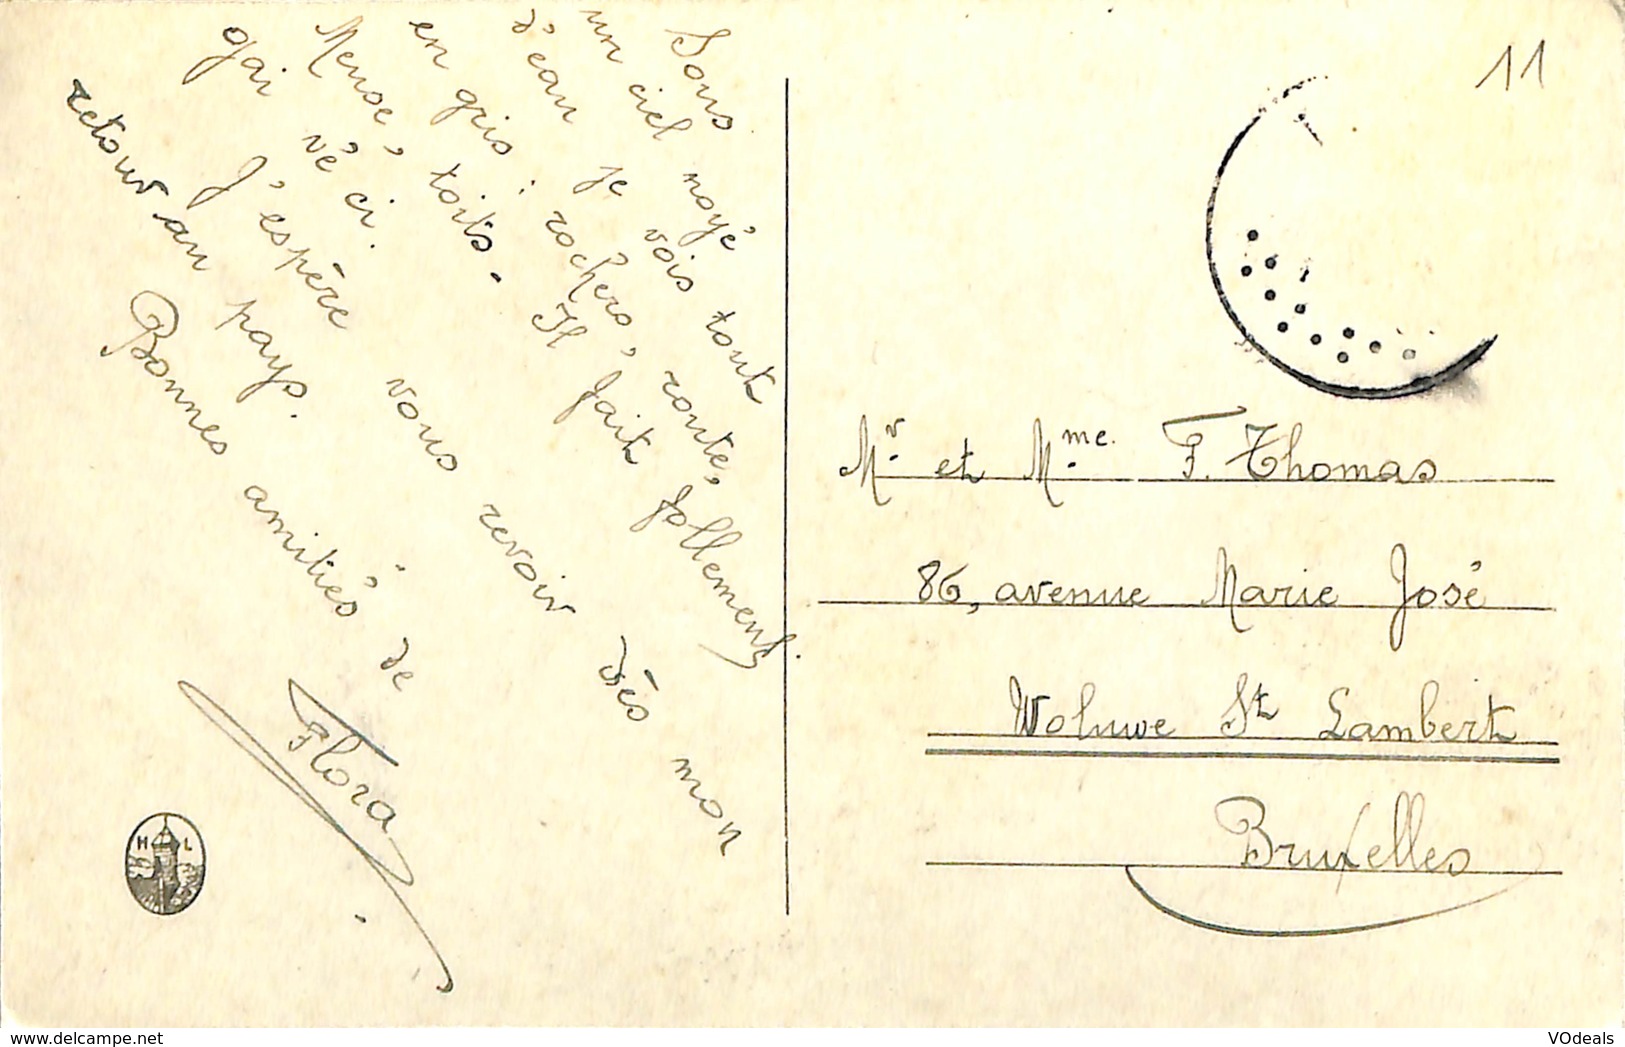 Sous
un ciel noyé
d'eau je vois tout
en gris : rochers, route,
Meuse, toits. Il fait follement
gai vé ci.
J'espère vous revoir dès mon
retour au pays.
Bonnes amitiés de
Flora
H L
11
Mr. et Mme. F. Thomas
86, avenue Marie José
Woluwe St Lambert
Bruxelles
delcampe.net
VOdeals